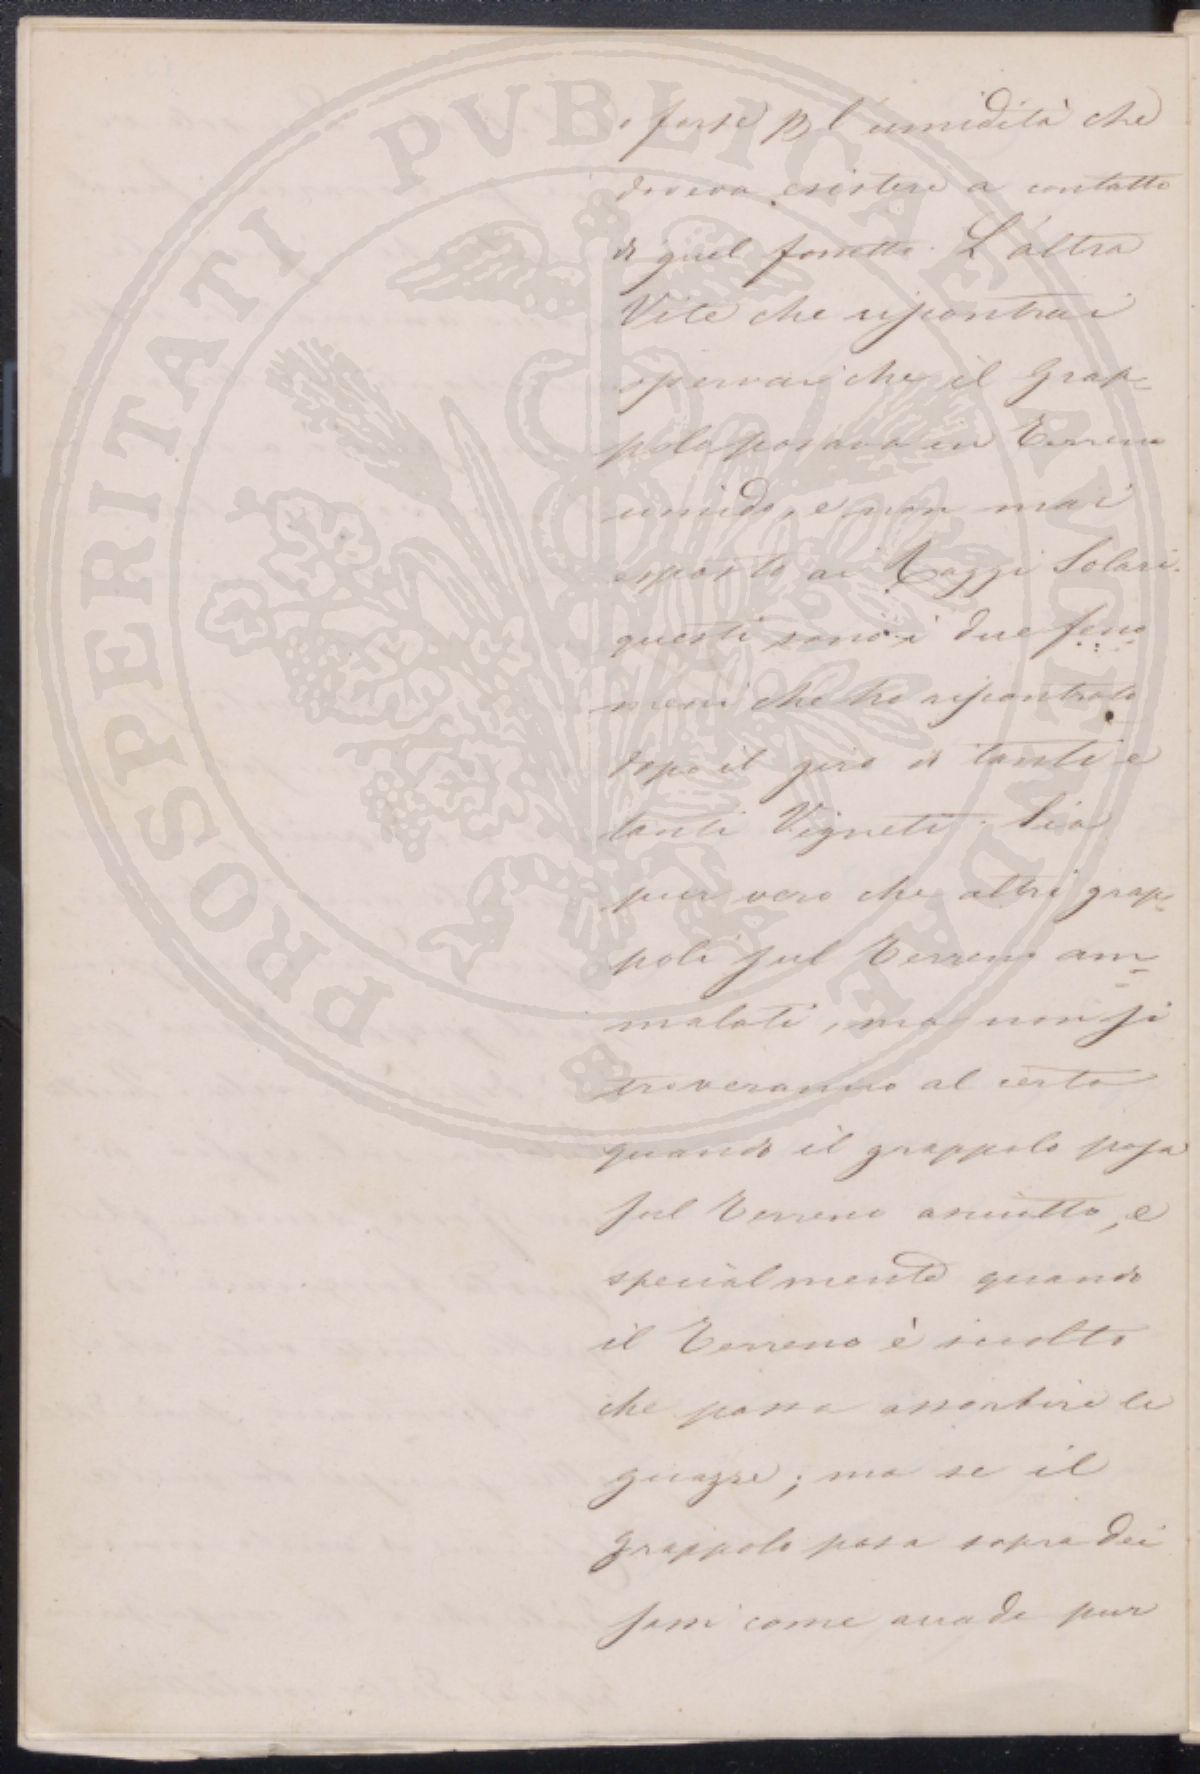 o forse p l'umidità che
doveva esistere a contatto
di quel fossetto. L'altra
Vite che riscontrai
osservai che il Grap=
polo posava in Terreno
umido, e non mai
esposto ai Raggi Solari.
questi sono i due feno
meni che ho riscontrato
dopo il giro di tanti e
tanti Vigneti. Sia
pur vero che altri grap=
poli sul Terreno am=
malati, ma non si
troveranno al certo
quando il grappolo posa
sul Terreno asciutto, e
specialmente quando
il Terreno è sciolto
che possa assorbire le
guazze; ma se il
grappolo posa sopra dei
sassi come accade pur
PROSPERITATI PVBLICAE AVGENDAE